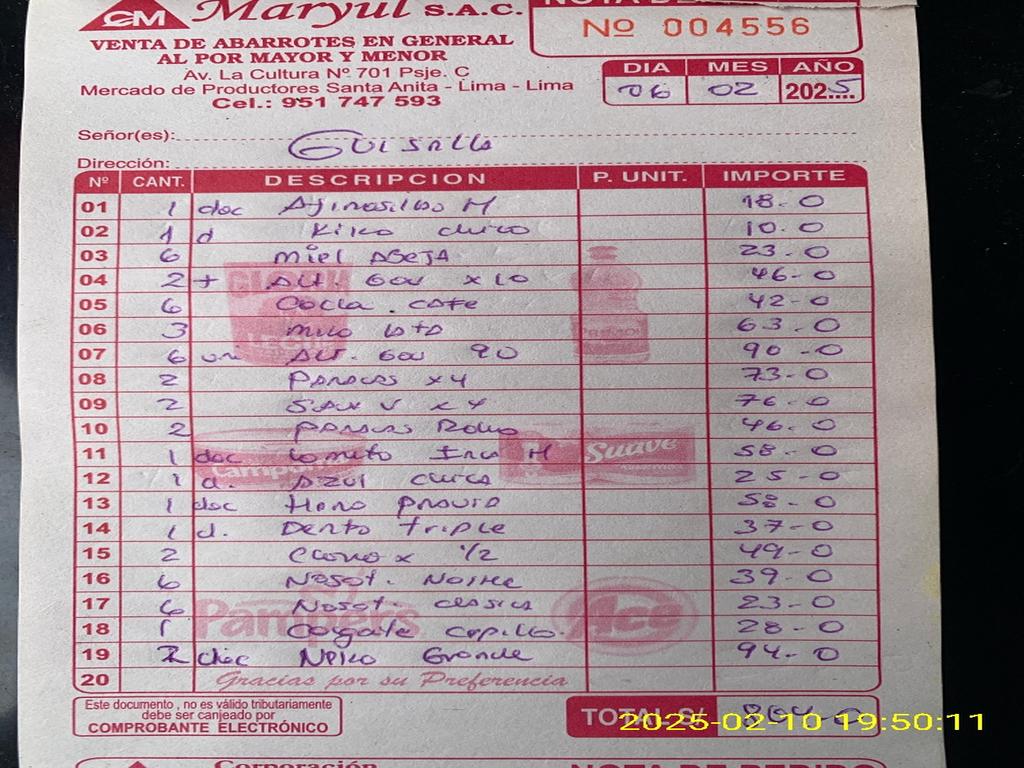 CM Maryul S.A.C.
VENTA DE ABARROTES EN GENERAL
AL POR MAYOR Y MENOR
Av. La Cultura Nº 701 Psje. C
Mercado de Productores Santa Anita - Lima - Lima
Cel.: 951 747 593
Nº 004556
DIA MES AÑO
06 02 2025
Señor(es):
Dirección:
Nº CANT. DESCRIPCION P. UNIT. IMPORTE
01 1 doc 18-0
02 1 d chico 10.0
03 6 Miel ABEJA 23-0
04 2 + Alt. Gou x 10 46-0
05 6 Cocca cafe 42-0
06 3 Milo lata 63-0
07 6 un Alt. Gou 90 90-0
08 2 Paracas x4 73-0
09 2 x 4 76-0
10 2 Paracas Rollo 46-0
11 1 doc Inca M 58-0
12 1 d. Azul chico 25-0
13 1 doc 58-0
14 1 d. Dento Triple 37-0
15 2 x 1/2 49-0
16 6 Nosot. Noche 39-0
17 6 Nosot. clasica 23-0
18 1 Colgate cepillo. 28-0
19 2 doc Grande 94-0
20 Gracias por su Preferencia
GLORIA
LECHE
Suave
Pampers
Ace
Este documento, no es válido tributariamente
debe ser canjeado por
COMPROBANTE ELECTRÓNICO
TOTAL S/
2025-02-10 19:50:11
Corporación
NOTA DE PEDIDO